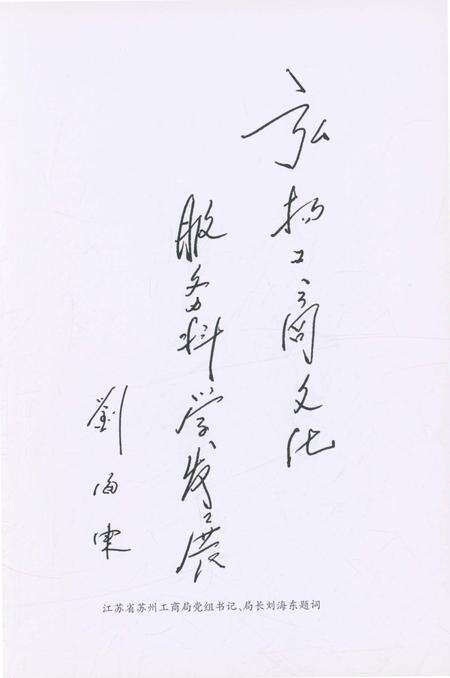 弘扬工商文化
服务科学发展
劉海东
江苏省苏州工商局党组书记、局长刘海东题词